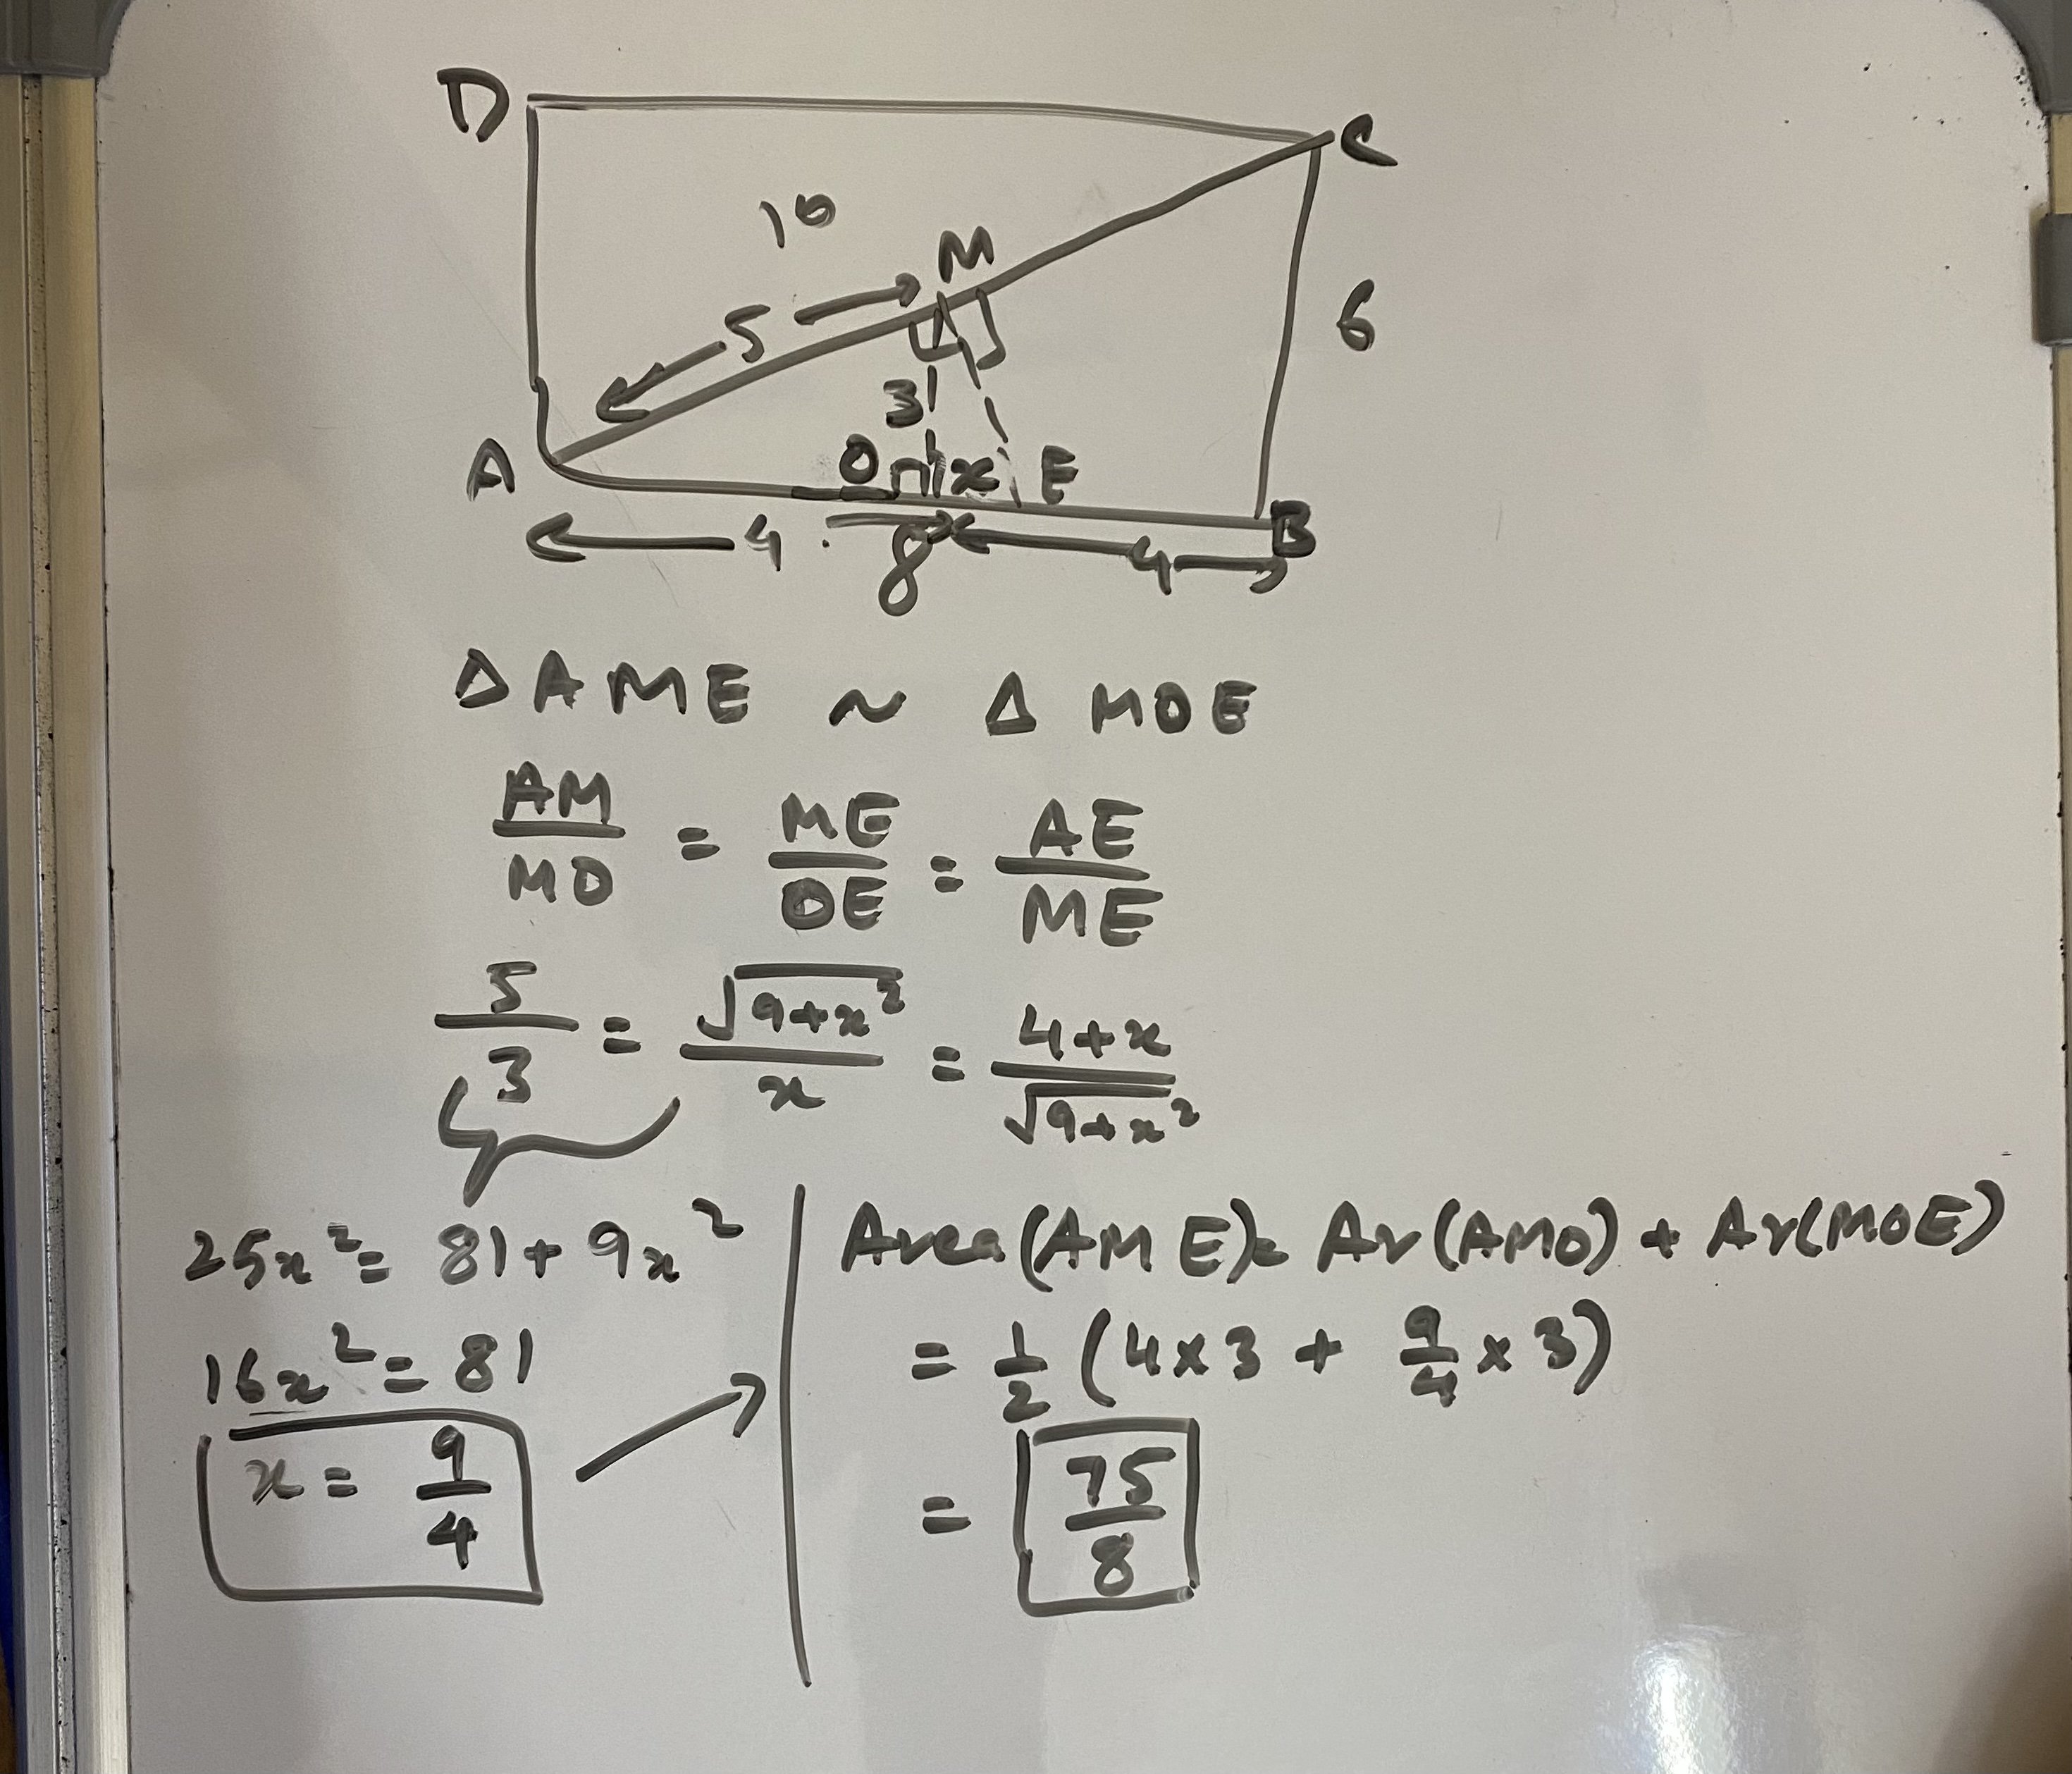 D
C
10
M
5
6
3
A
O x E
B
4 8 4
Δ AME ~ Δ MOE
AM/MO = ME/OE = AE/ME
5/3 = √(9+x²)/x = 4+x/√(9+x²)
25x² = 81 + 9x²
16x² = 81
x = 9/4
Area(AME) = Ar(AMO) + Ar(MOE)
= 1/2 (4×3 + 9/4 × 3)
= 75/8